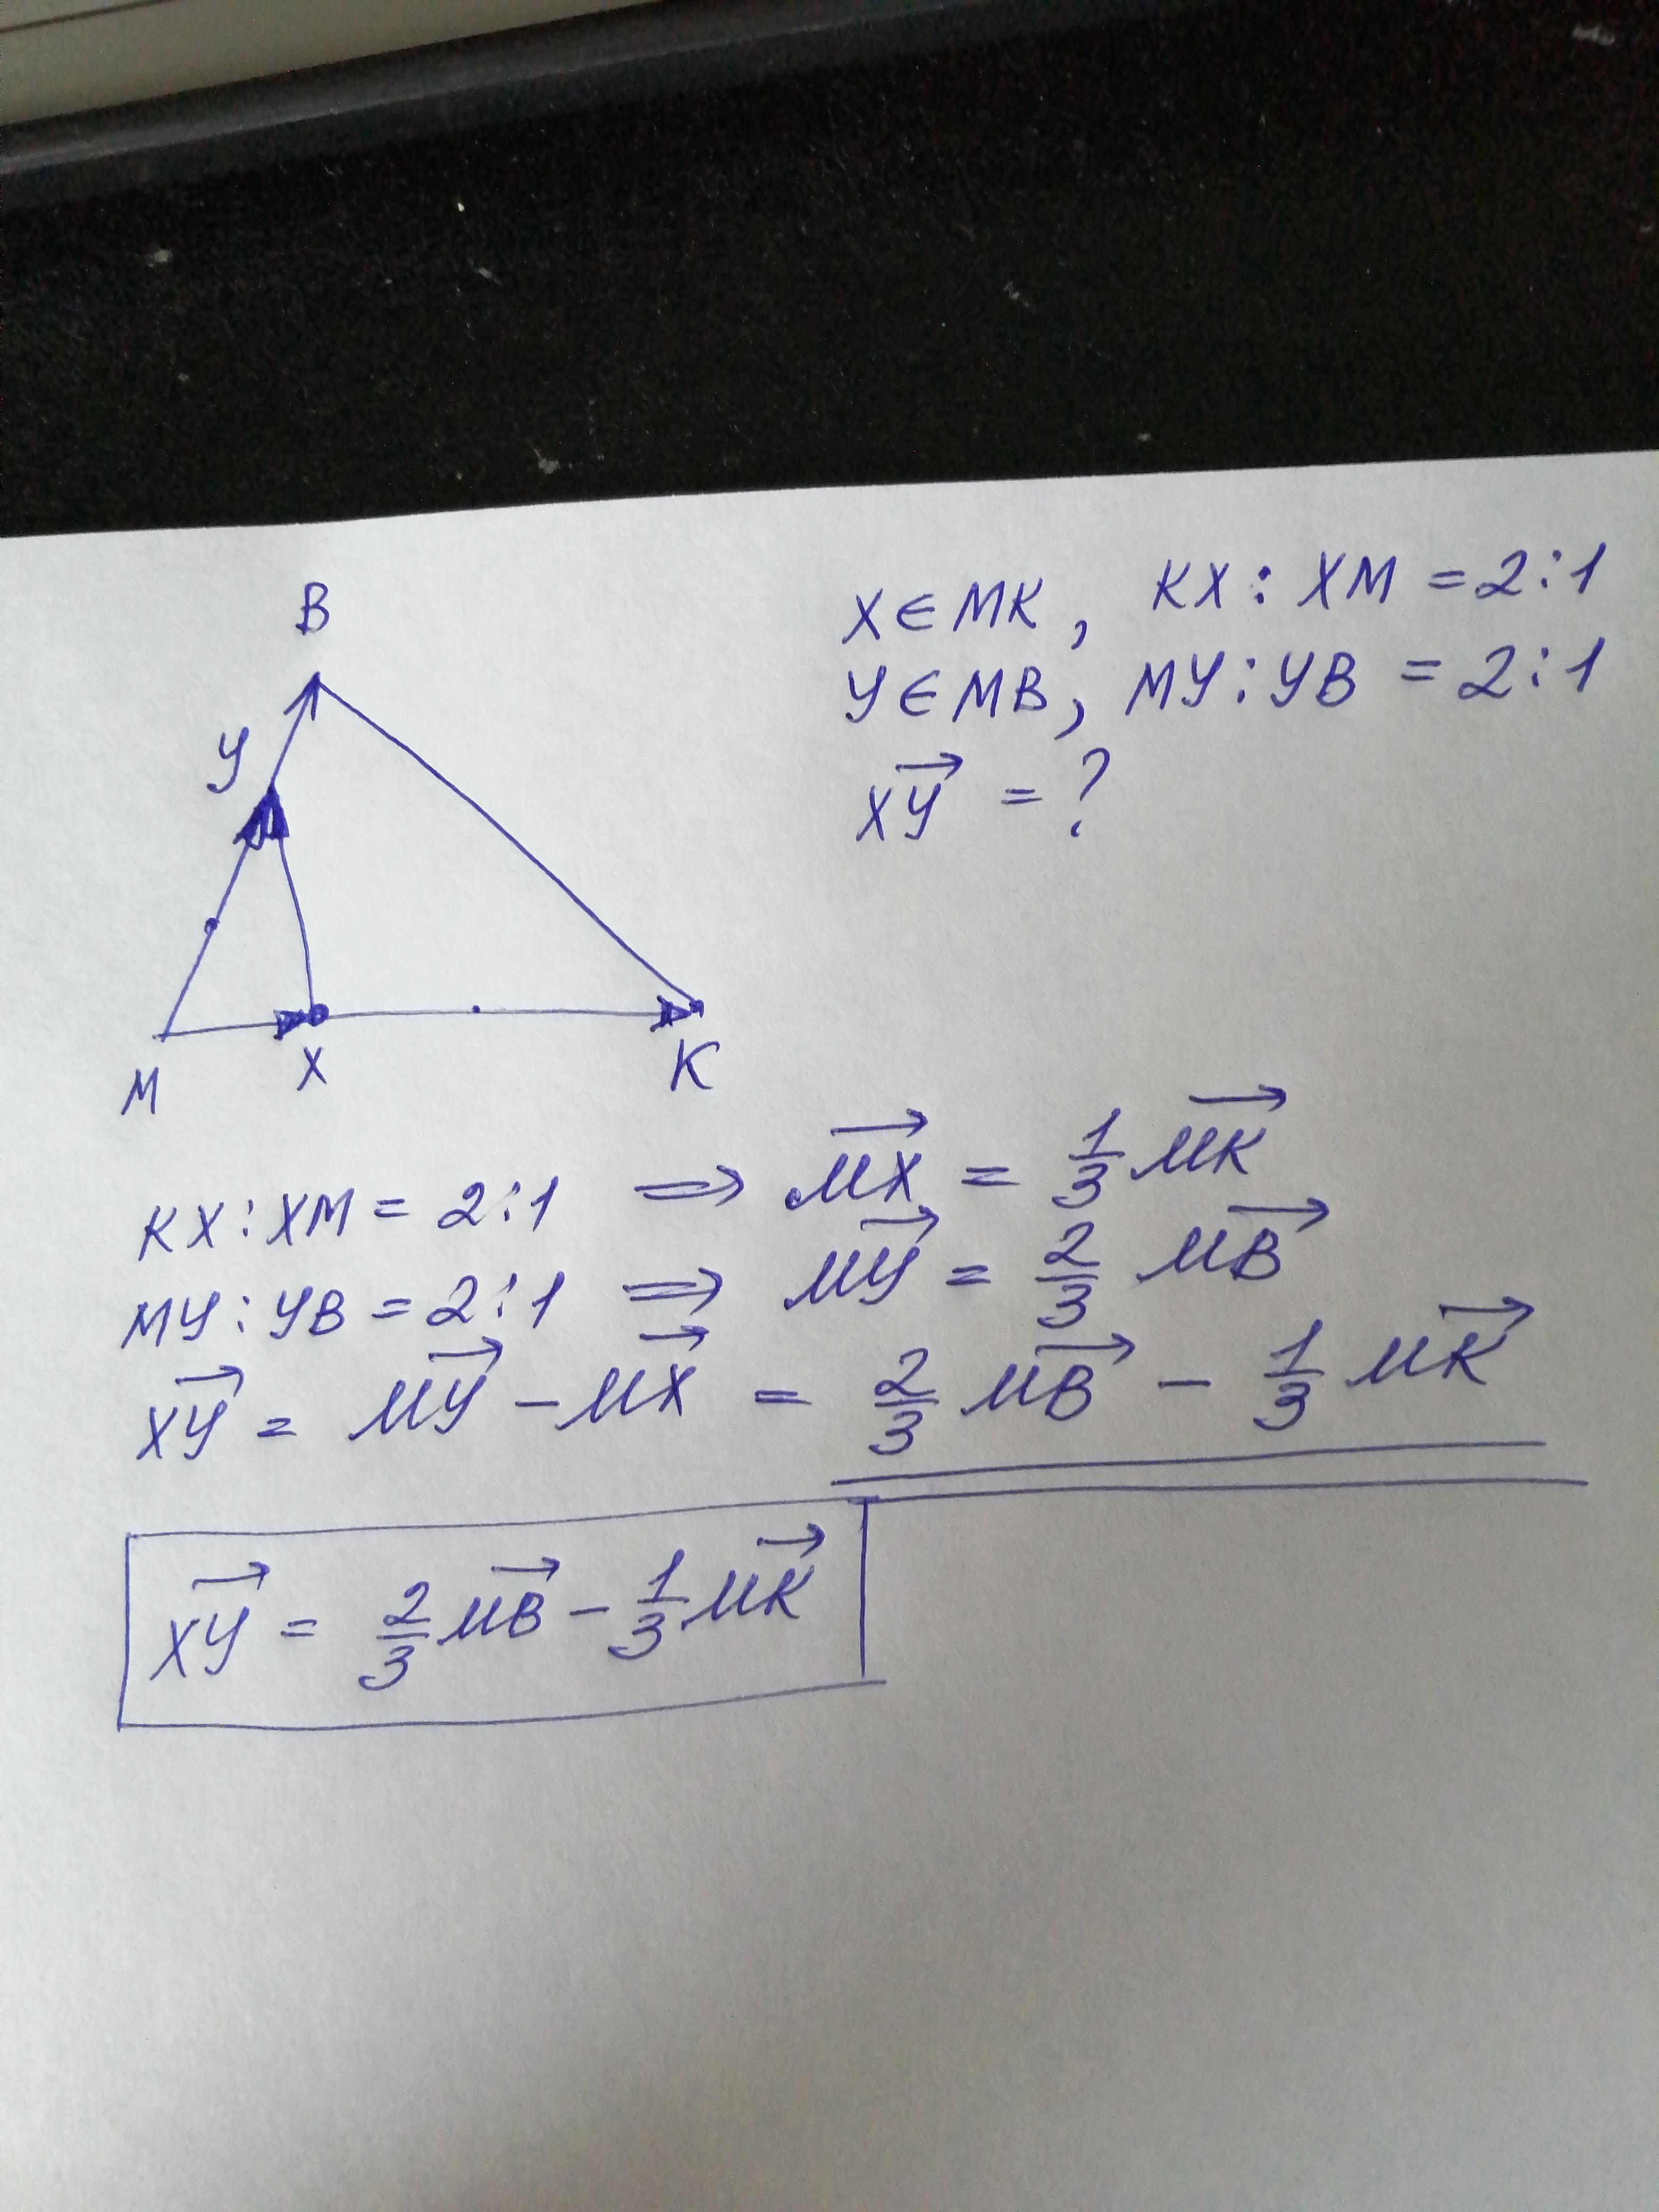 B
У
M
X
K
X∈MK, KX:XM=2:1
У∈MB, MУ:УB=2:1
→XУ=?
KX:XM=2:1 ⟹ →MX = 1/3 →MK
MУ:УB=2:1 ⟹ →MУ = 2/3 →MB
→XУ = →MУ - →MX = 2/3 →MB - 1/3 →MK
→XУ = 2/3 →MB - 1/3 →MK